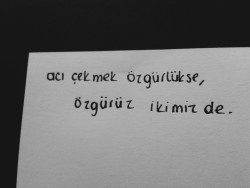 acı çekmek özgürlükse,
özgürüz ikimiz de.